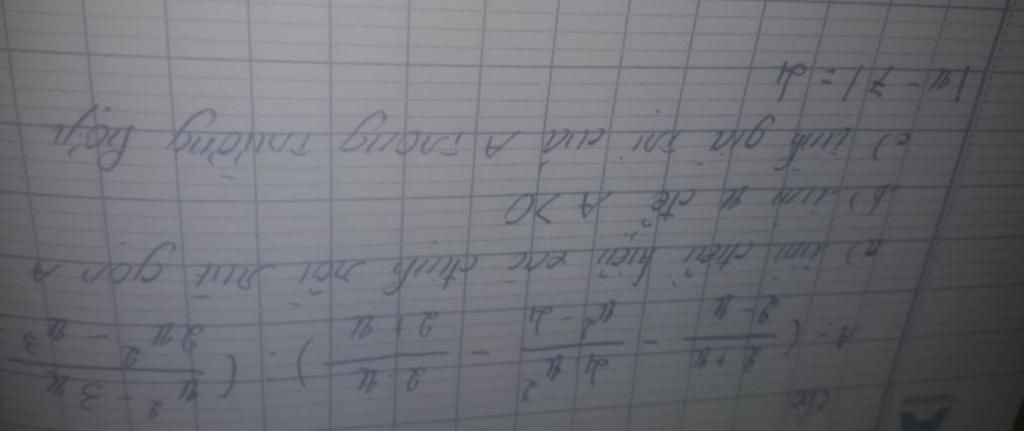 A = ( (2 + x)/(2 - x) - (4x²)/(x² - 4) - (2 - x)/(2 + x) ) : ( (x² - 3x)/(2x² - x³) )
a) tìm điều kiện xác định rồi rút gọn A
b) tìm x để A > 0
c) tính giá trị của A trong trường hợp
|x - 7| = 4